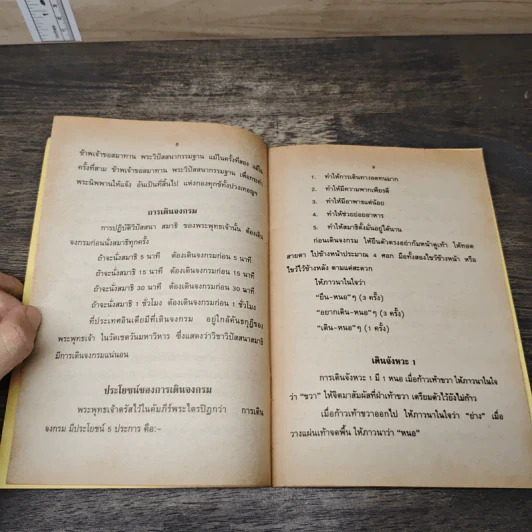 ๘
ข้าพเจ้าขอสมาทาน พระวิปัสสนากรรมฐาน แม้ในครั้งที่สอง แม้ใน
ครั้งที่สาม ข้าพเจ้าขอสมาทาน พระวิปัสสนากรรมฐาน เพื่อกระทำ
พระนิพพานให้แจ้ง อันเป็นที่สิ้นไป แห่งกองทุกข์ทั้งปวงเทอญฯ
การเดินจงกรม
การปฏิบัติวิปัสสนา สมาธิ ของพระพุทธเจ้านั้น ต้องเดิน
จงกรมก่อนนั่งสมาธิทุกครั้ง
ถ้าจะนั่ง 5 นาที ต้องเดินจงกรมก่อน 5 นาที
ถ้าจะนั่งสมาธิ 15 นาที ต้องเดินจงกรมก่อน 15 นาที
ถ้าจะนั่งสมาธิ 30 นาที ต้องเดินจงกรมก่อน 30 นาที
ถ้าจะนั่งสมาธิ 1 ชั่วโมง ต้องเดินจงกรมก่อน 1 ชั่วโมง
ที่ประเทศอินเดียมีที่เดินจงกรม อยู่ใกล้คันธกุฎีของ
พระพุทธเจ้า ในวัดเชตวันมหาวิหาร ซึ่งแสดงว่าวิชาวิปัสสนาสมาธิ
มีการเดินจงกรมแน่นอน
ประโยชน์ของการเดินจงกรม
พระพุทธเจ้าตรัสไว้ในคัมภีร์พระไตรปิฎกว่า การเดิน
จงกรม มีประโยชน์ 5 ประการ คือ:-
๙
1. ทำให้การเดินทางอดทนมาก
2. ทำให้มีความพากเพียรดี
3. ทำให้มีอาพาธแต่น้อย
4. ทำให้ช่วยย่อยอาหาร
5. ทำให้สมาธิตั้งมั่นอยู่ได้นาน
ก่อนเดินจงกรม ให้ยืนตัวตรงอย่าก้มหน้าดูเท้า ให้ทอด
สายตา ไปข้างหน้าประมาณ 4 ศอก มือทั้งสองไขว้ข้างหน้า หรือ
ไขว้ไว้ข้างหลัง ตามแต่สะดวก
ให้ภาวนาในใจว่า
"ยืน-หนอ"ๆ (3 ครั้ง)
"อยากเดิน-หนอ"ๆ (3 ครั้ง)
"เดิน-หนอ"ๆ (1 ครั้ง)
เดินจังหวะ 1
การเดินจังหวะ 1 มี 1 หนอ เมื่อก้าวเท้าขวา ให้ภาวนาในใจ
ว่า "ขวา" ให้จิตมาสัมผัสที่ฝ่าเท้าขวา เตรียมตัวไว้ยังไม่ก้าว
เมื่อก้าวเท้าขวาออกไป ให้ภาวนาในใจว่า "ย่าง" เมื่อ
วางแผ่นเท้าจดพื้น ให้ภาวนาว่า "หนอ"